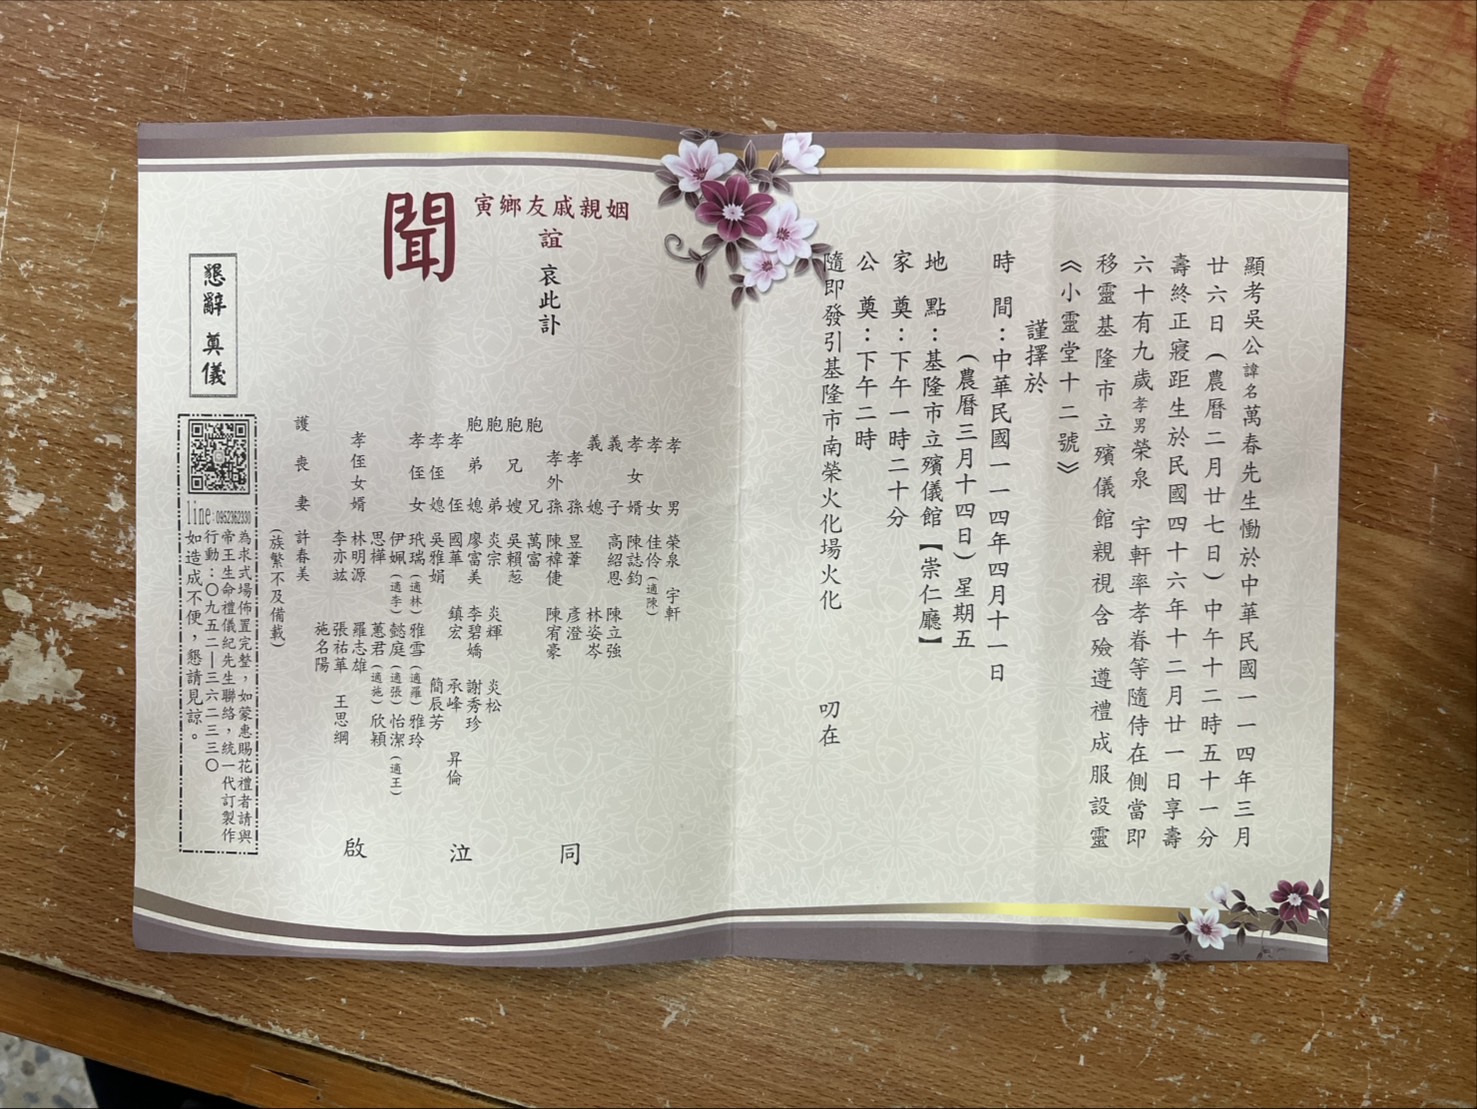 顯考吳公諱名萬春先生慟於中華民國一一四年三月
廿六日(農曆二月廿七日)中午十二時五十一分
壽終正寢距生於民國四十六年十二月廿一日享壽
六十有九歲孝男榮泉 宇軒率孝眷等隨侍在側當即
移靈基隆市立殯儀館親視含殮遵禮成服設靈
《小靈堂十二號》
謹擇於
時 間:中華民國一一四年四月十一日
(農曆三月十四日)星期五
地 點:基隆市立殯儀館【崇仁廳】
家 奠:下午一時二十分
公 奠:下午二時
隨即發引基隆市南榮火化場火化 叨在
姻親戚友鄉寅
誼 哀此訃
聞
孝男 榮泉 宇軒
孝女 佳伶(適陳)
孝女婿 陳誌鈞
義子 高紹恩 陳立強
義媳 林姿岑
孝孫 昱葦 彥澄
孝外孫 陳褘倢 陳宥豪
胞兄 萬富
胞兄嫂 吳賴葱
胞弟 炎宗 炎輝 炎松
胞弟媳 廖富美 李碧嬌 謝秀珍
孝侄 國華 鎮宏 承峰 昇倫
孝侄媳 吳雅娟 簡辰芳
孝侄女 玳瑞(適林) 雅雪(適羅) 雅玲
伊姵(適李) 懿庭(適張) 怡潔(適王)
思樺 蕙君(適施) 欣穎
孝侄女婿 林明源 羅志雄
李亦竑 張祐華 王思綱
施名陽
護喪妻 許春美
(族繁不及備載)
同 泣 啟
懇辭 奠儀
line:0952362330
為求式場佈置完整,如蒙惠賜花禮者請與
帝王生命禮儀紀先生聯絡,統一代訂製作
行動:〇九五二—三六二三三〇
如造成不便,懇請見諒。